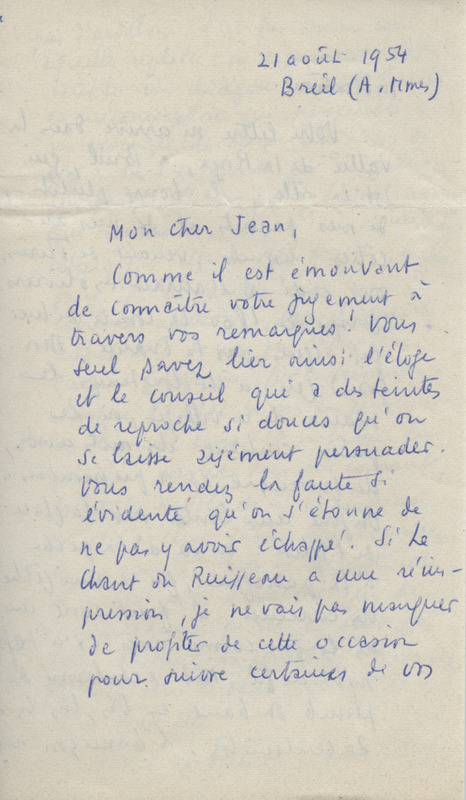 21 août 1954
Breil (A. Mmes)
Mon cher Jean,
Comme il est émouvant
de connaître votre jugement à
travers vos remarques! Vous
seul savez lier ainsi l'éloge
et le conseil qui a des teintes
de reproche si douces qu'on
se laisse aisément persuader.
Vous rendez la faute si
évidente, qu'on s'étonne de
ne pas y avoir échappé. Si Le
Chant du Ruisseau a une réim-
pression, je ne vais pas manquer
de profiter de cette occasion
pour suivre certaines de vos